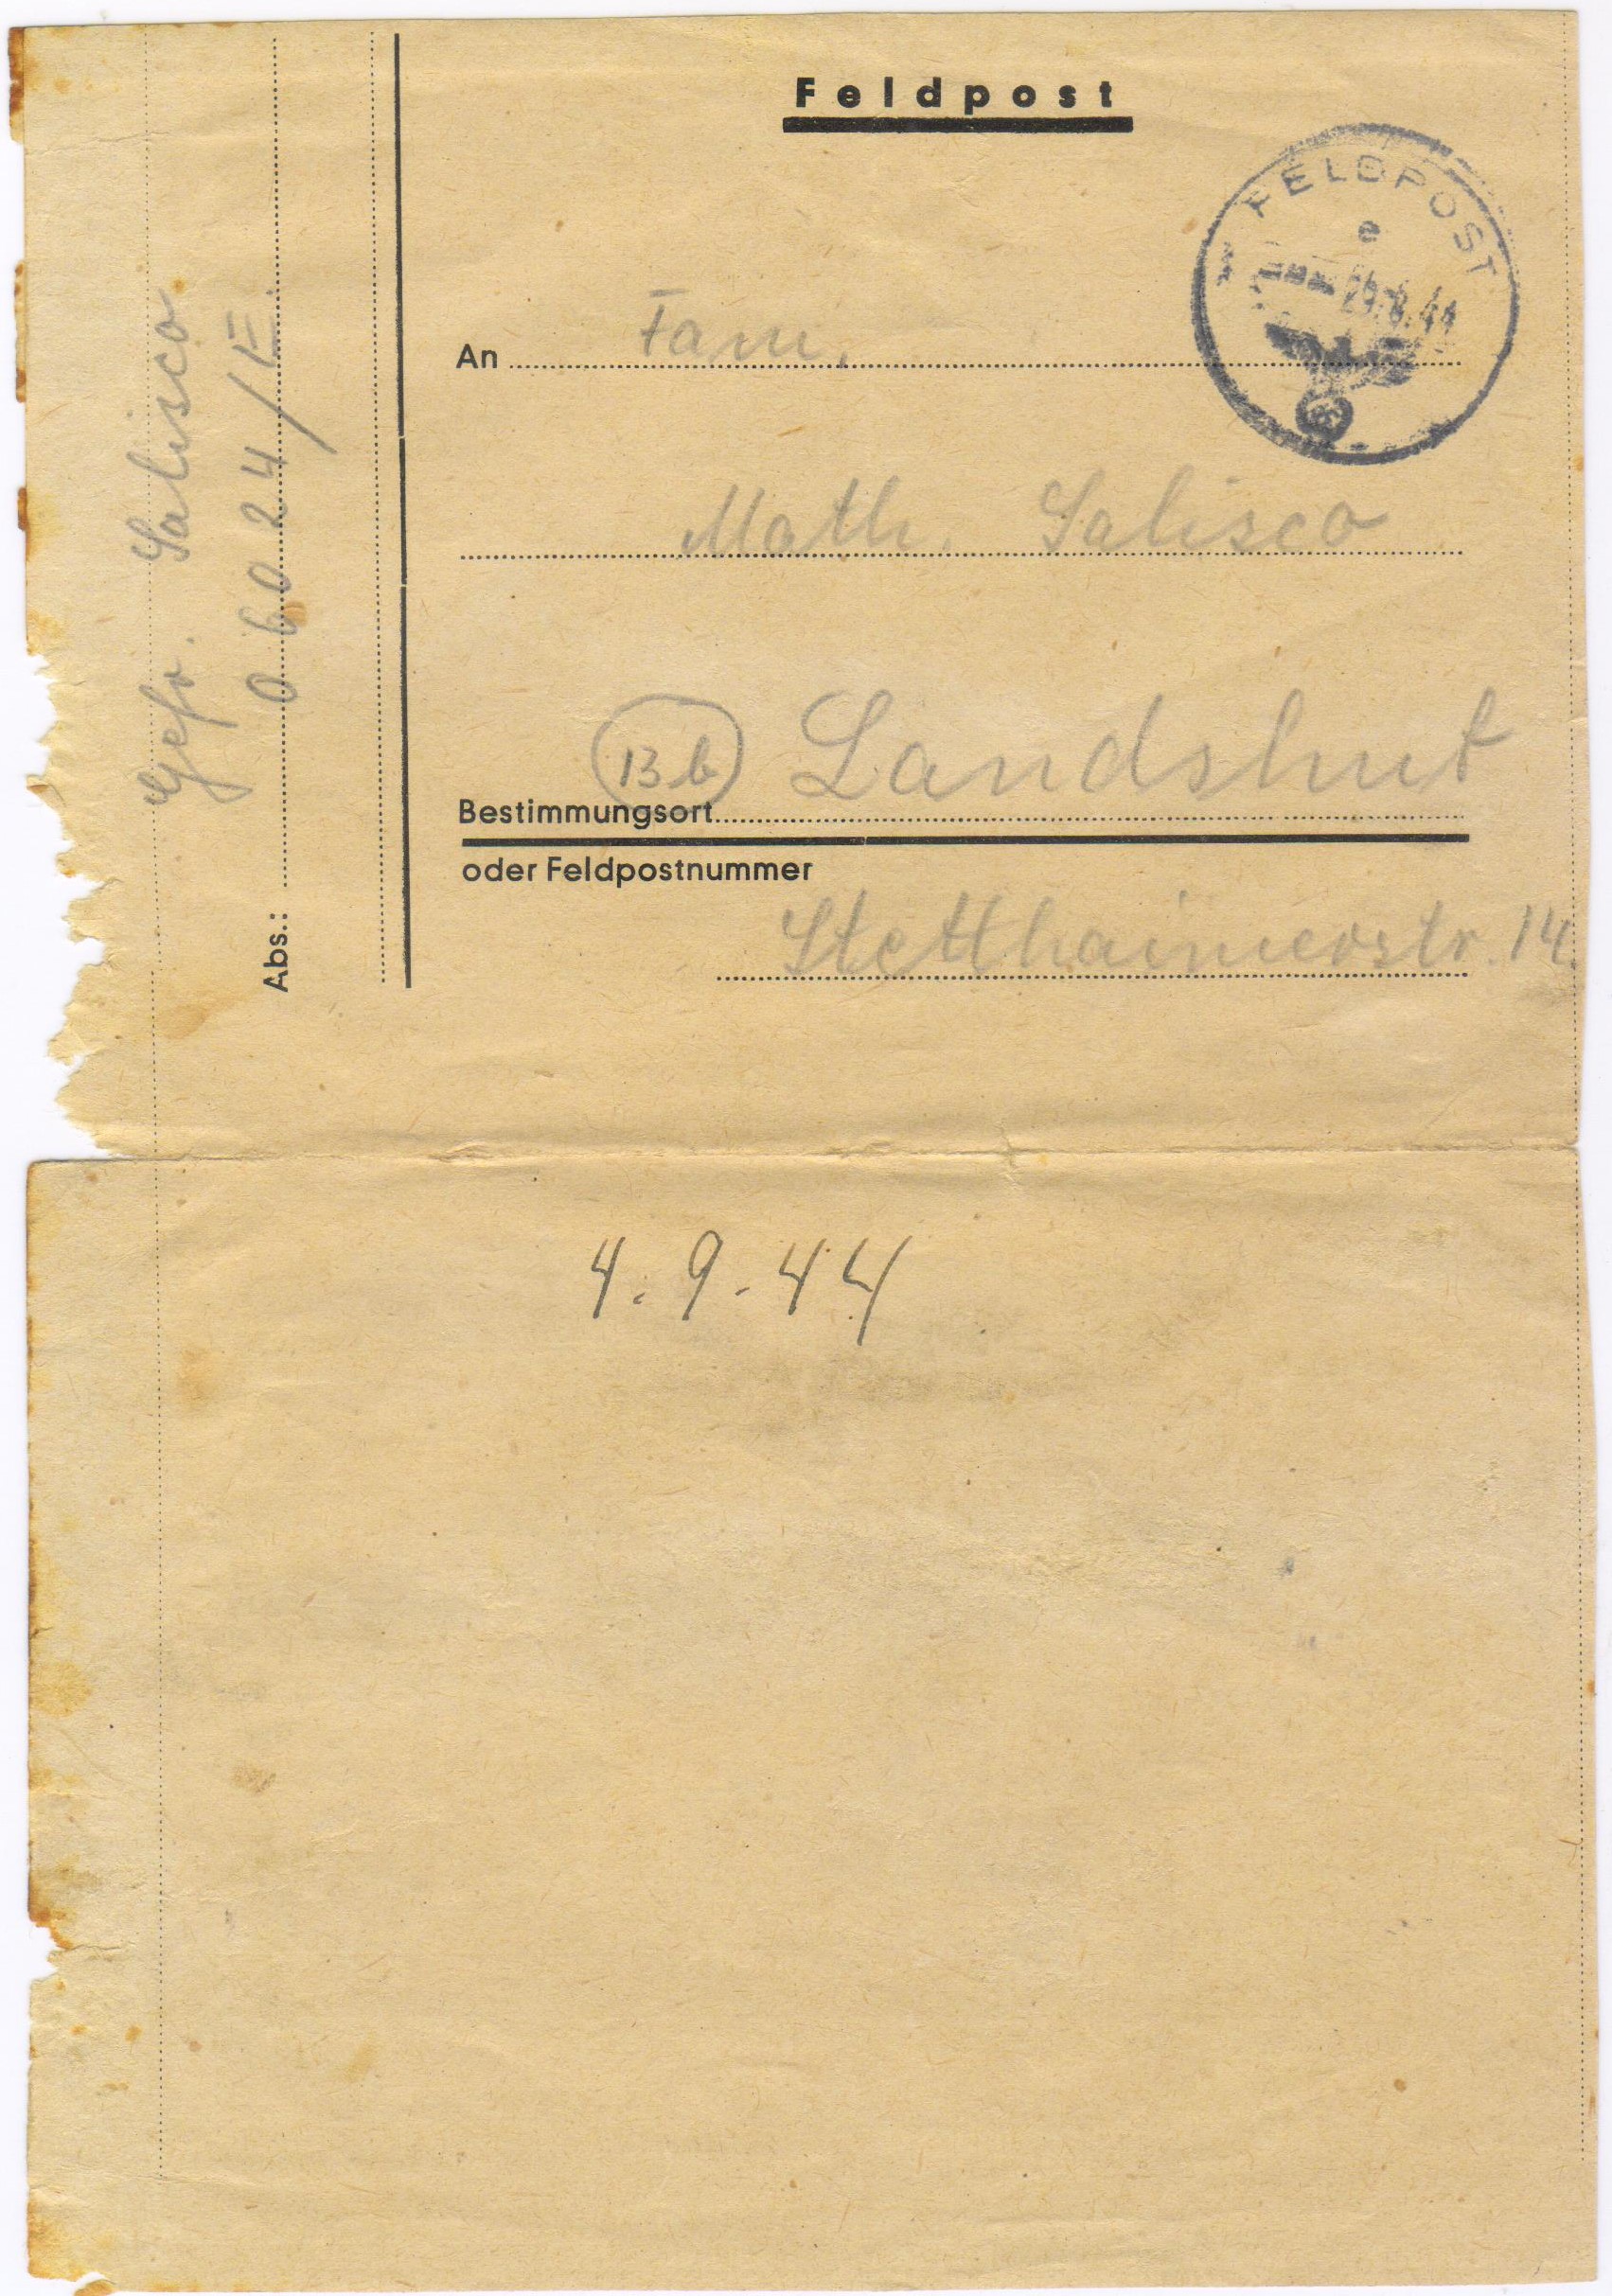 Feldpost
FELDPOST
e
29.8.44
An Fam.
Math. Salisco
13b Landshut
Bestimmungsort
oder Feldpostnummer
Stetthaimerstr. 14
Gefr. Salisco
06024/E
Abs.:
4.9.44